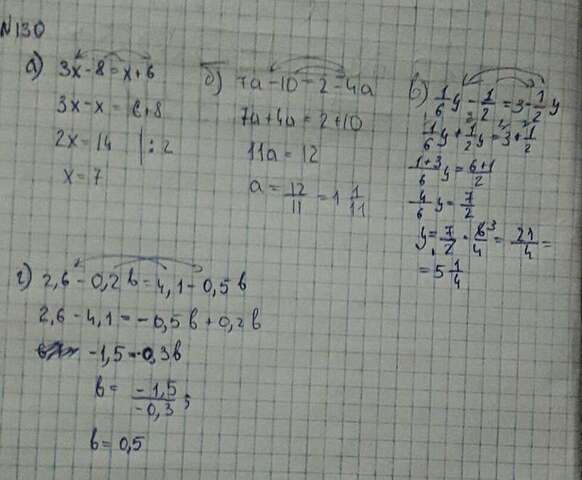 N130
а) 3x - 8 = x + 6
3x - x = 6 + 8
2x = 14 | : 2
x = 7
б) 7a - 10 = 2 - 4a
7a + 4a = 2 + 10
11a = 12
a = 12/11 = 1 1/11
в) 1/6 y - 1/2 = 3 - 1/2 y
1/6 y + 1/2 y = 3 + 1/2
1+3/6 y = 6+1/2
4/6 y = 7/2
y = 7/2 · 6³/4 = 21/4 =
= 5 1/4
г) 2,6 - 0,2в = 4,1 - 0,5в
2,6 - 4,1 = -0,5в + 0,2в
-1,5 = -0,3в
в = -1,5/-0,3 ;
в = 0,5